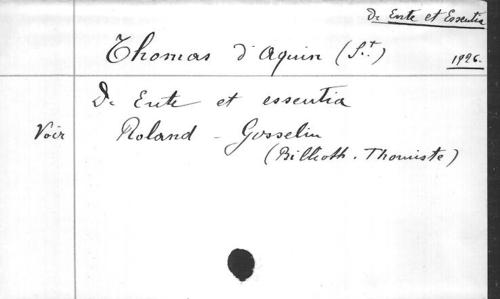 De Ente et Essentia
Thomas d'Aquin (St.)
1926.
De Ente et essentia
Voir Roland-Gosselin
(Biblioth. Thomiste)